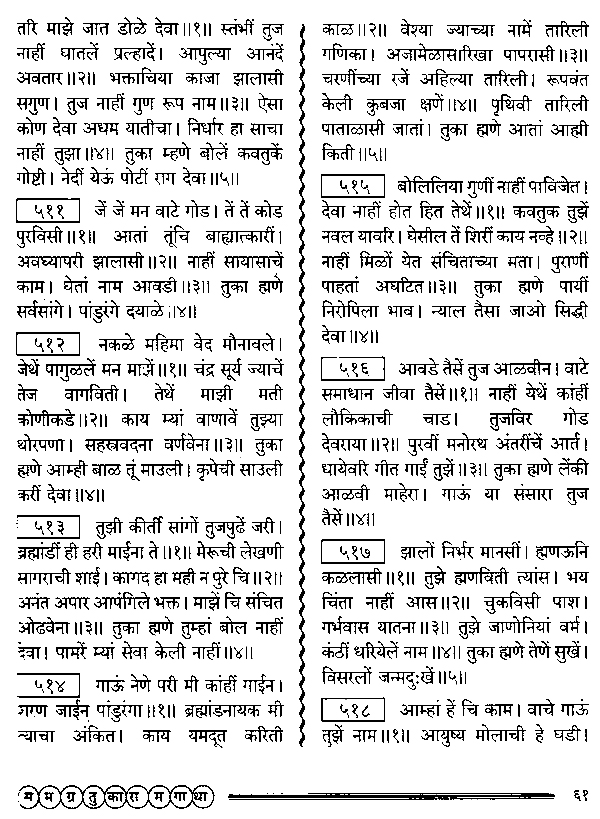 तरि माझे जात डोळे देवा॥१॥ स्तंभीं तुज
नाहीं घातलें प्रल्हादें। आपुल्या आनंदें
अवतार॥२॥ भक्ताचिया काजा झालासी
सगुण। तुज नाहीं गुण रूप नाम॥३॥ ऐसा
कोण देवा अधम यातीचा। निर्धार हा साचा
नाहीं तुझा॥४॥ तुका म्हणे बोलें कवतुकें
गोष्टी। नेदीं येऊं पोटीं राग देवा॥५॥
५११ जें जें मन वाटे गोड। तें तें कोड
पुरविसी॥१॥ आतां तूंचि बाह्यात्कारीं।
अवघ्यापरी झालासी॥२॥ नाहीं सायासाचें
काम। घेतां नाम आवडी॥३॥ तुका ह्मणे
सर्वसांगे। पांडुरंगे दयाळे॥४॥
५१२ नकळे महिमा वेद मौनावले।
जेथें पागुळलें मन माझें॥१॥ चंद्र सूर्य ज्याचें
तेज वागविती। तेथें माझी मती
कोणीकडे॥२॥ काय म्यां वाणावें तुझ्या
थोरपणा। सहस्त्रवदना वर्णवेना॥३॥ तुका
ह्मणे आम्ही बाळ तूं माउली। कृपेची साउली
करीं देवा॥४॥
५१३ तुझी कीर्ती सांगों तुजपुढें जरी।
ब्रह्मांडीं ही हरी माईना ते॥१॥ मेरूची लेखणी
सागराची शाई। कागद हा मही न पुरे चि॥२॥
अनंत अपार आपंगिले भक्त। माझें चि संचित
ओढवेना॥३॥ तुका ह्मणे तुम्हां बोल नाहीं
देवा। पामरें म्यां सेवा केली नाहीं॥४॥
५१४ गाऊं नेणे परी मी कांहीं गाईन।
शरण जाईन पांडुरंगा॥१॥ ब्रह्मांडनायक मी
त्याचा अंकित। काय यमदूत करिती
काळ॥२॥ वेश्या ज्याच्या नामें तारिली
गणिका। अजामेळासारिखा पापरासी॥३॥
चरणींच्या रजें अहिल्या तारिली। रूपवंत
केली कुबजा क्षणें॥४॥ पृथिवी तारिली
पाताळासी जातां। तुका ह्मणे आतां आह्मी
किती॥५॥
५१५ बोलिलिया गुणीं नाहीं पाविजेत।
देवा नाहीं होत हित तेथें॥१॥ कवतुक तुझें
नवल यावरि। घेसील तें शिरीं काय नव्हे॥२॥
नाहीं मिळों येत संचिताच्या मता। पुराणीं
पाहतां अघटित॥३॥ तुका ह्मणे पायीं
निरोपिला भाव। न्याल तैसा जाओ सिद्धी
देवा॥४॥
५१६ आवडे तैसें तुज आळवीन। वाटे
समाधान जीवा तैसें॥१॥ नाहीं येथें कांहीं
लौकिकाची चाड। तुजविर गोड
देवराया॥२॥ पुरवीं मनोरथ अंतरींचें आर्त।
धायेवरि गीत गाईं तुझें॥३॥ तुका ह्मणे लेंकी
आळवी माहेरा। गाऊं या संसारा तुज
तैसें॥४॥
५१७ झालों निर्भर मानसीं। ह्मणऊनि
कळलासी॥१॥ तुझे ह्मणविती त्यांस। भय
चिंता नाहीं आस॥२॥ चुकविसी पाश।
गर्भवास यातना॥३॥ तुझे जाणोनियां वर्म।
कंठीं धरियेलें नाम॥४॥ तुका ह्मणे तेणें सुखें।
विसरलों जन्मदुःखें॥५॥
५१८ आम्हां हें चि काम। वाचे गाऊं
तुझें नाम॥१॥ आयुष्य मोलाची हे घडी।
म भ ग्र तु का रा म गा था
६१